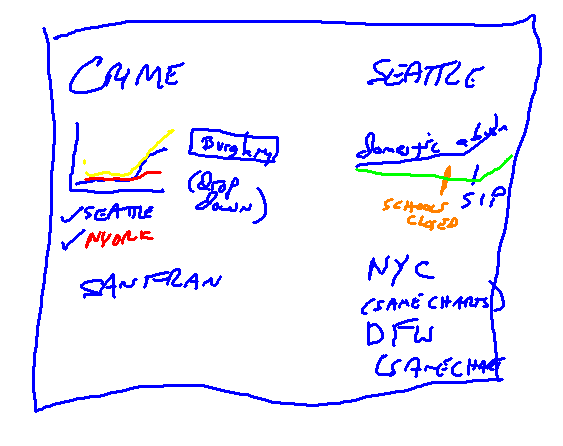 CRIME
Burglary
(Drop
down)
✓SEATTLE
✓NYORK
SANFRAN
SEATTLE
Domestic
SCHOOLS
CLOSED
SIP
NYC
(SAME CHARTS)
DFW
(SAME CHART